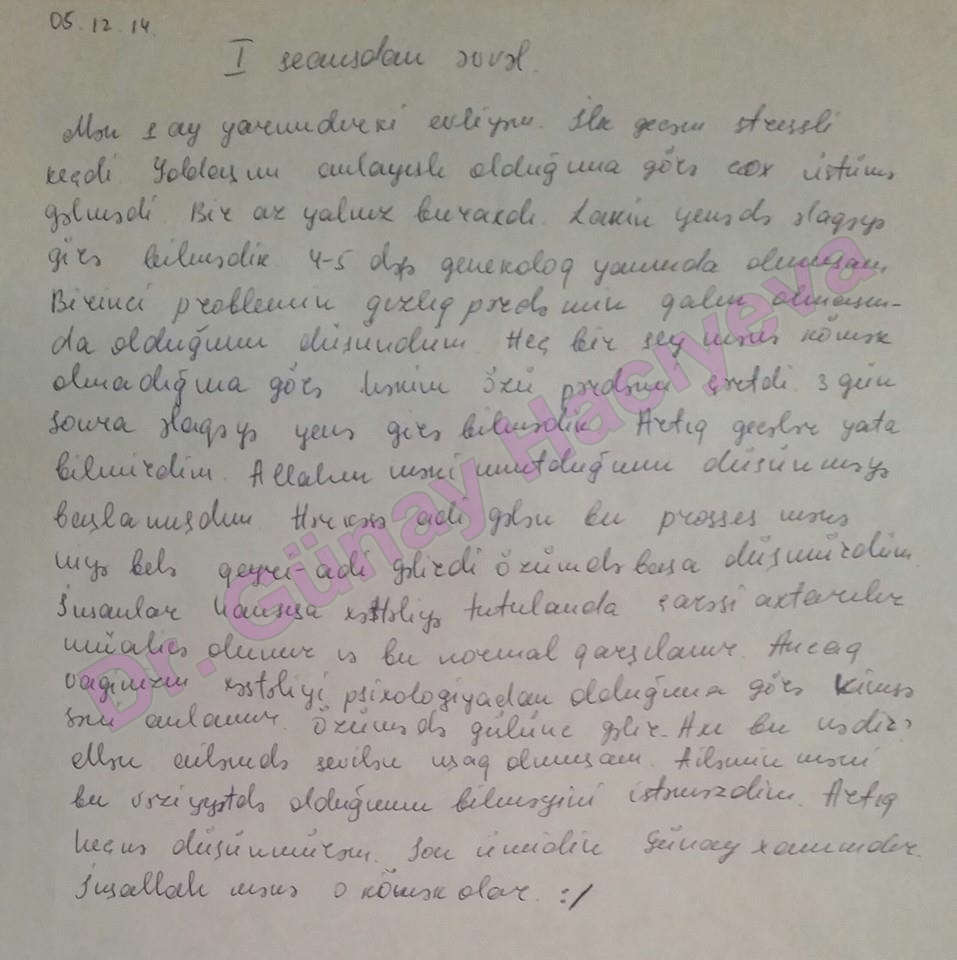 05.12.14.
I seansdan əvvəl.
Mən 1 ay yarımdırki evliyəm. İlk gecəm stressli
keçdi Yoldaşım anlayışlı olduğuna görə çox üstümə
gəlmədi. Bir az yalnız buraxdı. Lakin yenədə əlaqəyə
girə bilmədik 4-5 dəfə genekoloq yanında olmuşam
Birinci problemin qızlıq pərdəmin qalın olmasın-
da olduğunu düşündüm. Heç bir şey mənə kömək
olmadığına görə həkim özü pərdəmi çərtdi. 3 gün
sonra əlaqəyə yenə girə bilmədik Artıq gecələr yata
bilmirdim. Allahın məni unutduğunu düşünməyə
başlamışdım Hərkəsə adi gələn bu prosses mənə
niyə belə qeyri-adi gəlirdi özümdə başa düşmürdüm.
İnsanlar hansısa xəstəliyə tutulanda çarəsi axtarılır
müalicə olunur və bu normal qarşılanır. Ancaq
vaginizm xəstəliyi psixologiyadan olduğuna görə kimsə
səni anlamır. Özümədə gülünc gəlir. Axı bu nədir?
Mən ailəmdə sevilən uşaq olmuşam. Ailəmin məni
bu vəziyyətdə olduğumu bilməyini istəməzdim. Artıq
heçnə düşünmürəm. Son ümidim Günay xanımdır.
İnşallah mənə o kömək olar. :/
Dr. Günay Hacıyeva